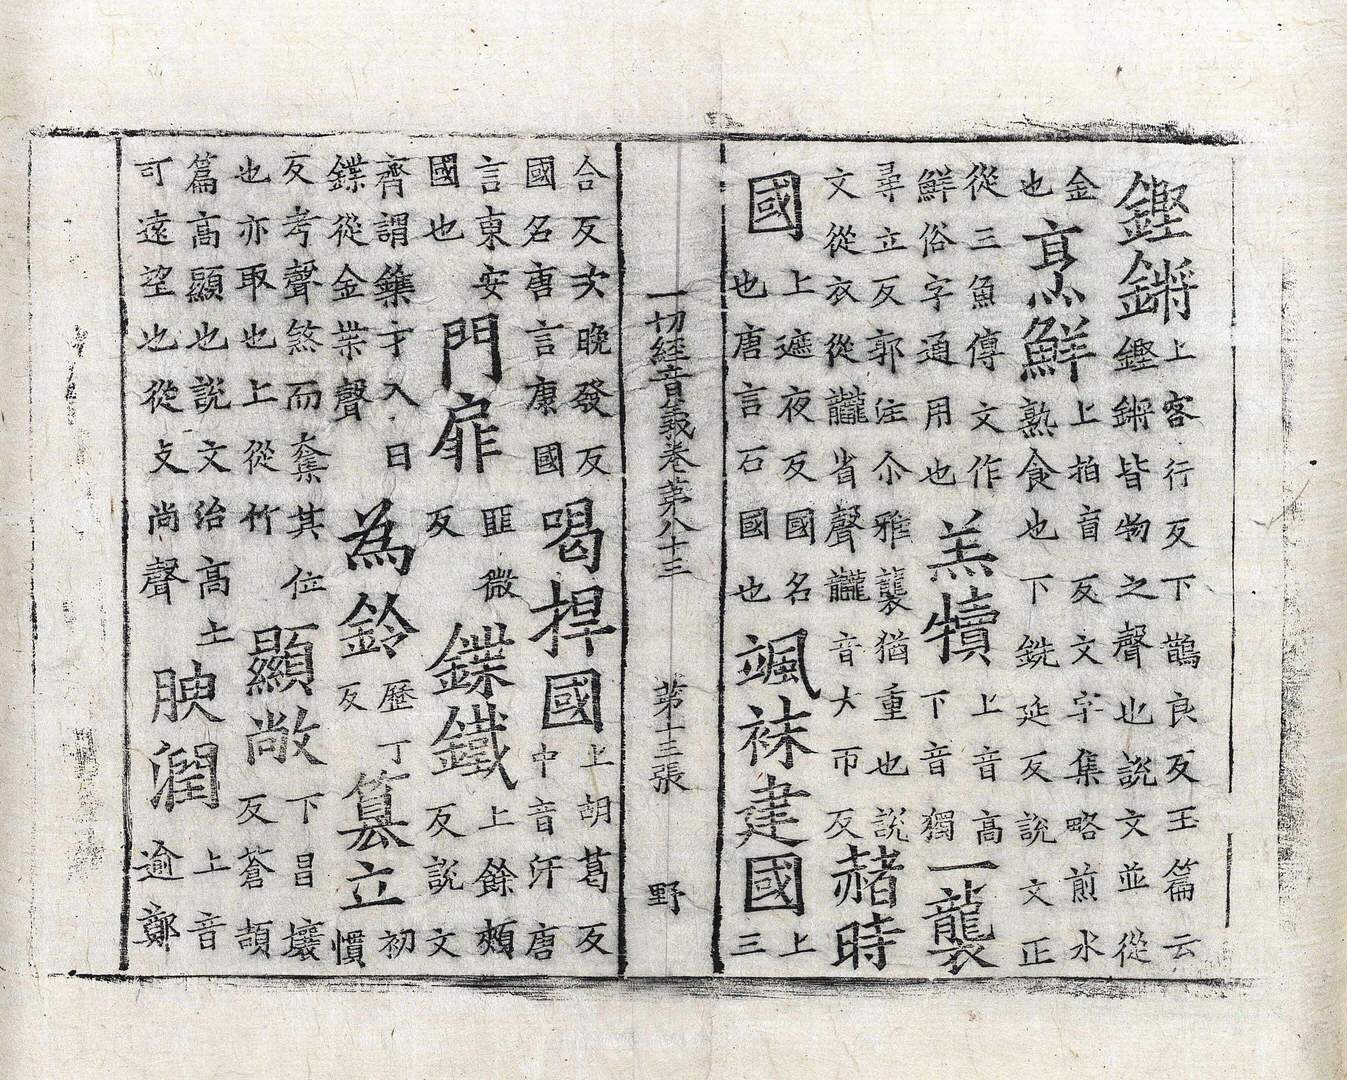 鏗鏘上客行反下鵲良反玉篇云鏗鏘皆物之聲也說文並從
金也烹鮮上拍盲反文字集略煎水熟食也下銑延反說文正
從三魚傳文作鮮俗字通用也羔犢上音高下音獨一襲
尋立反郭注尒雅襲猶重也說文從衣從龖省聲龖音大帀反赭時
國上遮夜反國名也唐言石國也颯秣建國上三
一切經音義卷第八十三 第十三張 野
合反次晚發反國名唐言康國喝捍國上胡葛反中音汗唐
言東安國也門扉匪微反鍱鐵上餘頰反說文
齊謂鏶才入曰鍱從金枼聲為鈴歷丁反篡立初慣
反考聲煞而奪其位也亦取也上從竹顯敞下昌壞反蒼頡
篇高顯也說文治高土可遠望也從攴尚聲腴潤上音逾鄭